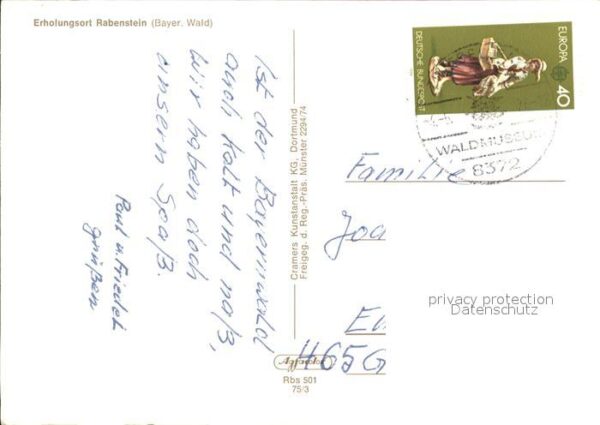 Erholungsort Rabenstein (Bayer. Wald)
Ist der Bayerwald
auch kalt und naß,
wir haben doch
unsern Spaß.
Paul u. Friedel
grüßen
Cramers Kunstanstalt KG, Dortmund
Freigeg. d. Reg.-Präs. Münster 2294/74
Agfacolor
Rbs 501
75/3
EUROPA
40
DEUTSCHE BUNDESPOST
WALDMUSEUM
8372
Familie
Joa
465 G
privacy protection
Datenschutz